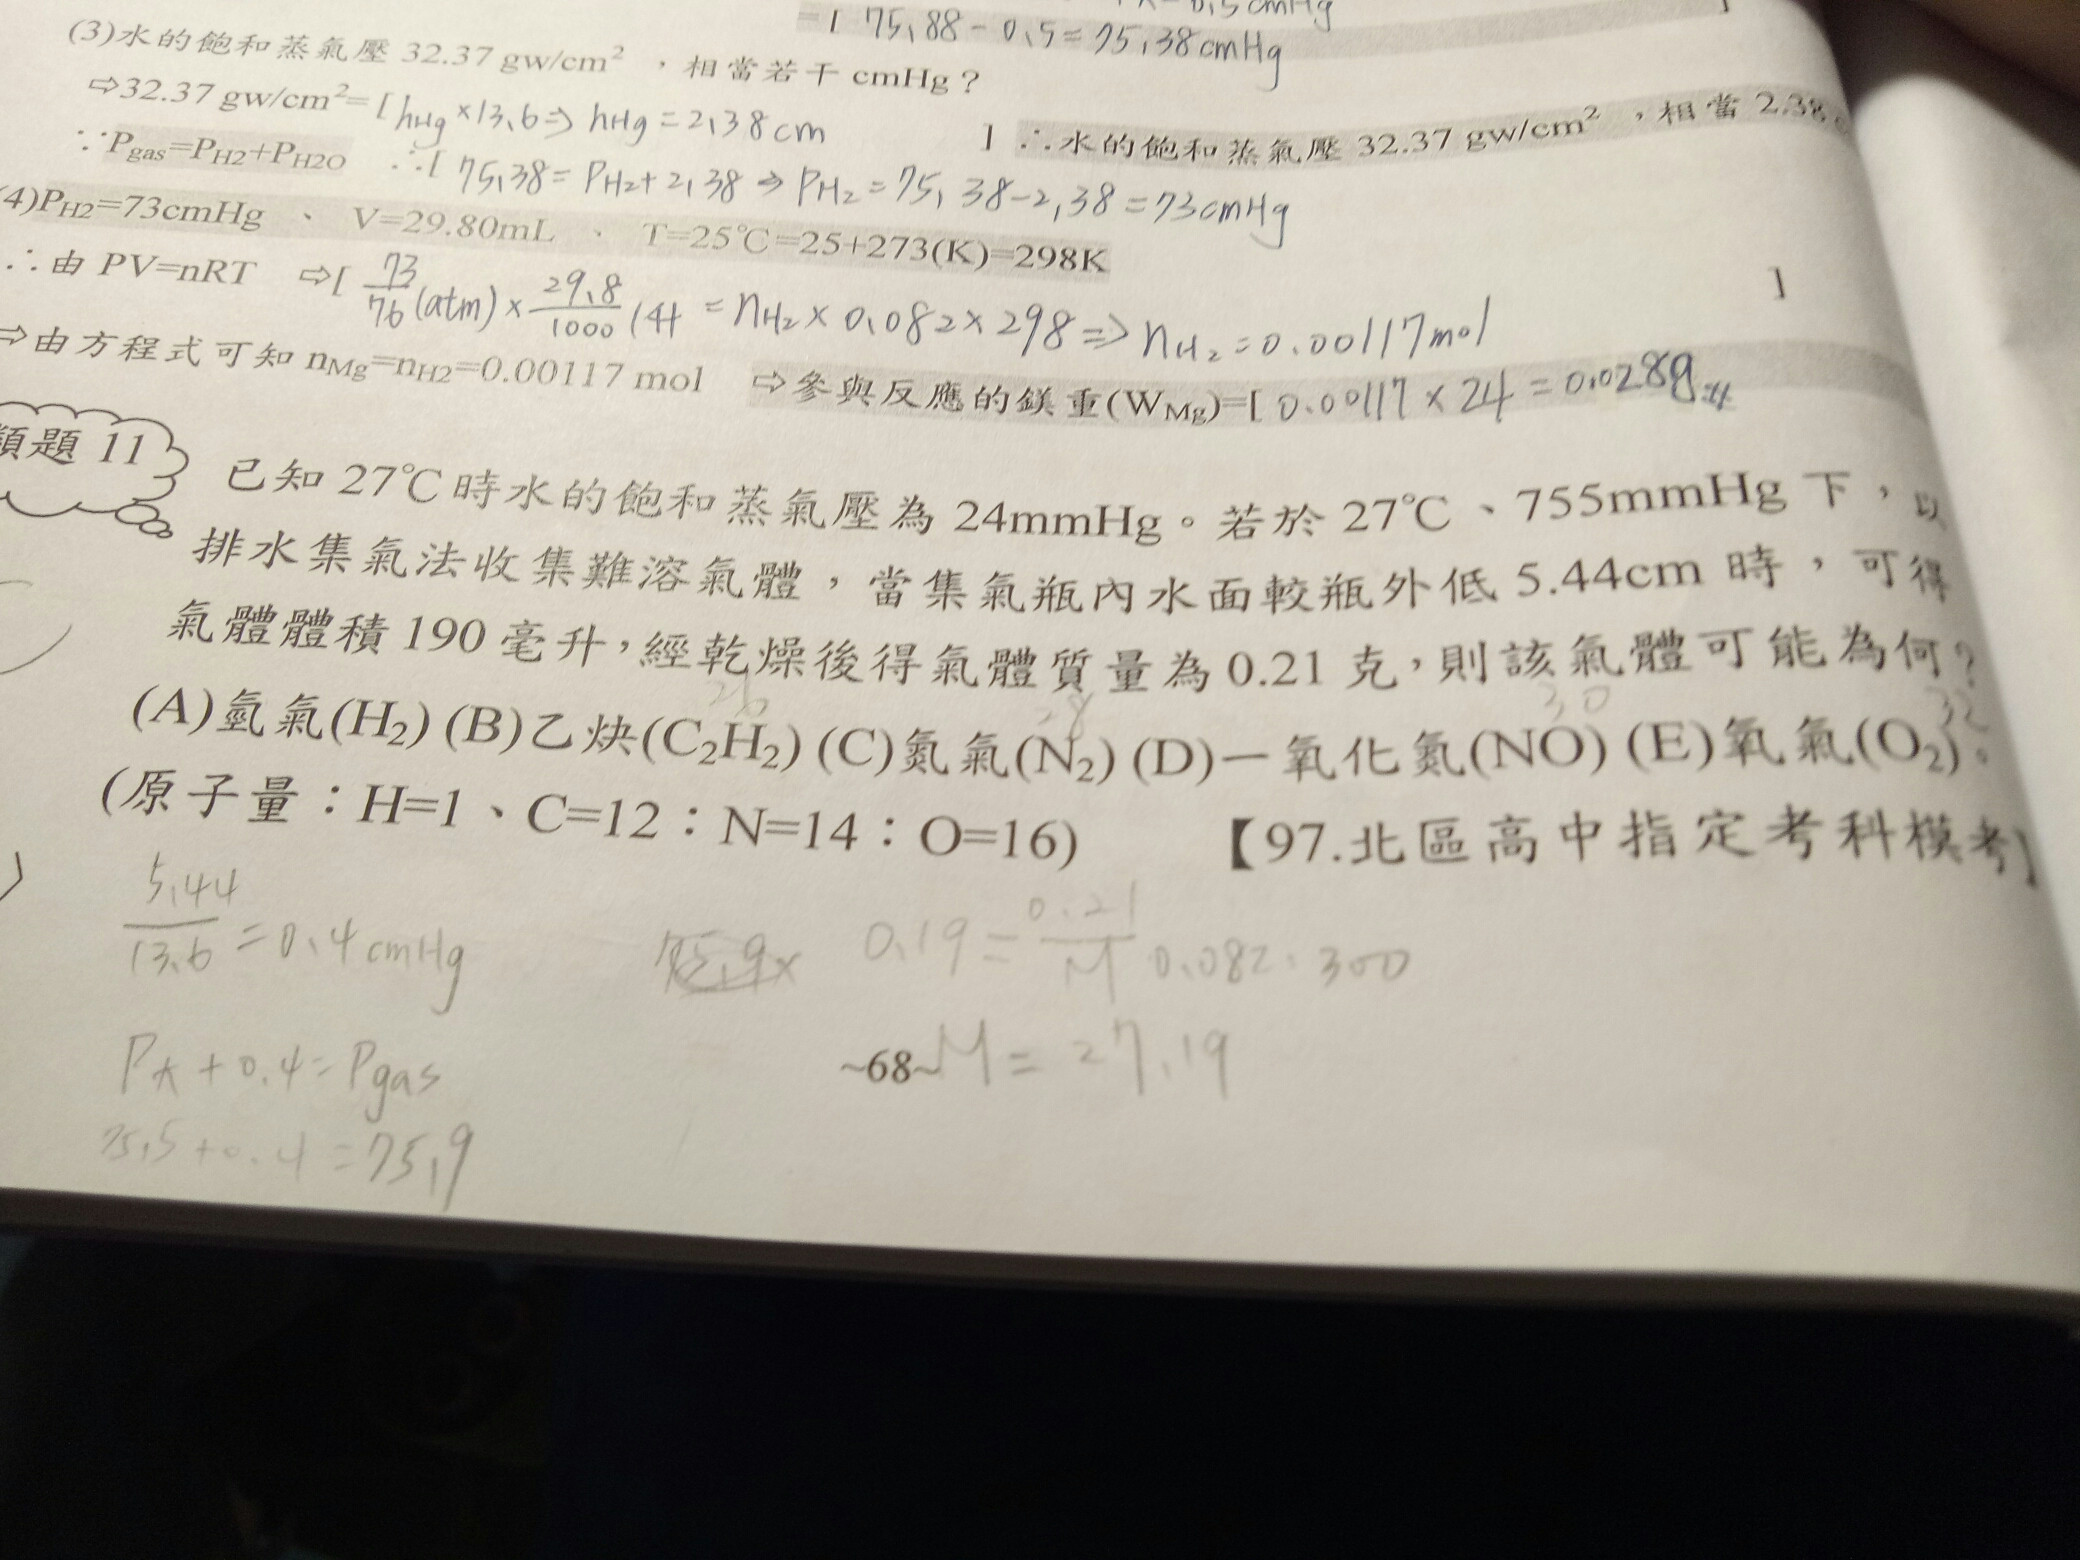 0.5cmHg
=[ 75.88-0.5=75.38cmHg ]
(3)水的飽和蒸氣壓 32.37 gw/cm²,相當若干 cmHg?
⇨32.37 gw/cm²=[ hHg×13.6⇒ hHg=2.38cm ] ∴水的飽和蒸氣壓 32.37 gw/cm²,相當 2.38
∵Pgas=PH2+PH2O ∴[ 75.38=PH2+2.38⇒PH2=75.38-2.38=73cmHg
(4)PH2=73cmHg 、 V=29.80mL 、 T=25℃=25+273(K)=298K
∴由 PV=nRT ⇨[ 73/76(atm)×29.8/1000 = nH2×0.082×298⇒nH2=0.00117mol ]
⇨由方程式可知 nMg=nH2=0.00117 mol ⇨參與反應的鎂重(WMg)=[ 0.00117×24=0.028g
類題 11
已知 27℃時水的飽和蒸氣壓為 24mmHg。若於 27℃、755mmHg 下,以
排水集氣法收集難溶氣體,當集氣瓶內水面較瓶外低 5.44cm 時,可得
氣體體積 190 毫升,經乾燥後得氣體質量為 0.21 克,則該氣體可能為何?
26 28 30 32
(A)氫氣(H₂) (B)乙炔(C₂H₂) (C)氮氣(N₂) (D)一氧化氮(NO) (E)氧氣(O₂)。
(原子量:H=1、C=12:N=14:O=16) 【97.北區高中指定考科模考】
5.44/13.6=0.4cmHg
0.19=0.21/M 0.082·300
PA+0.4=Pgas
~68~
M=27.19
75.5+0.4=75.9